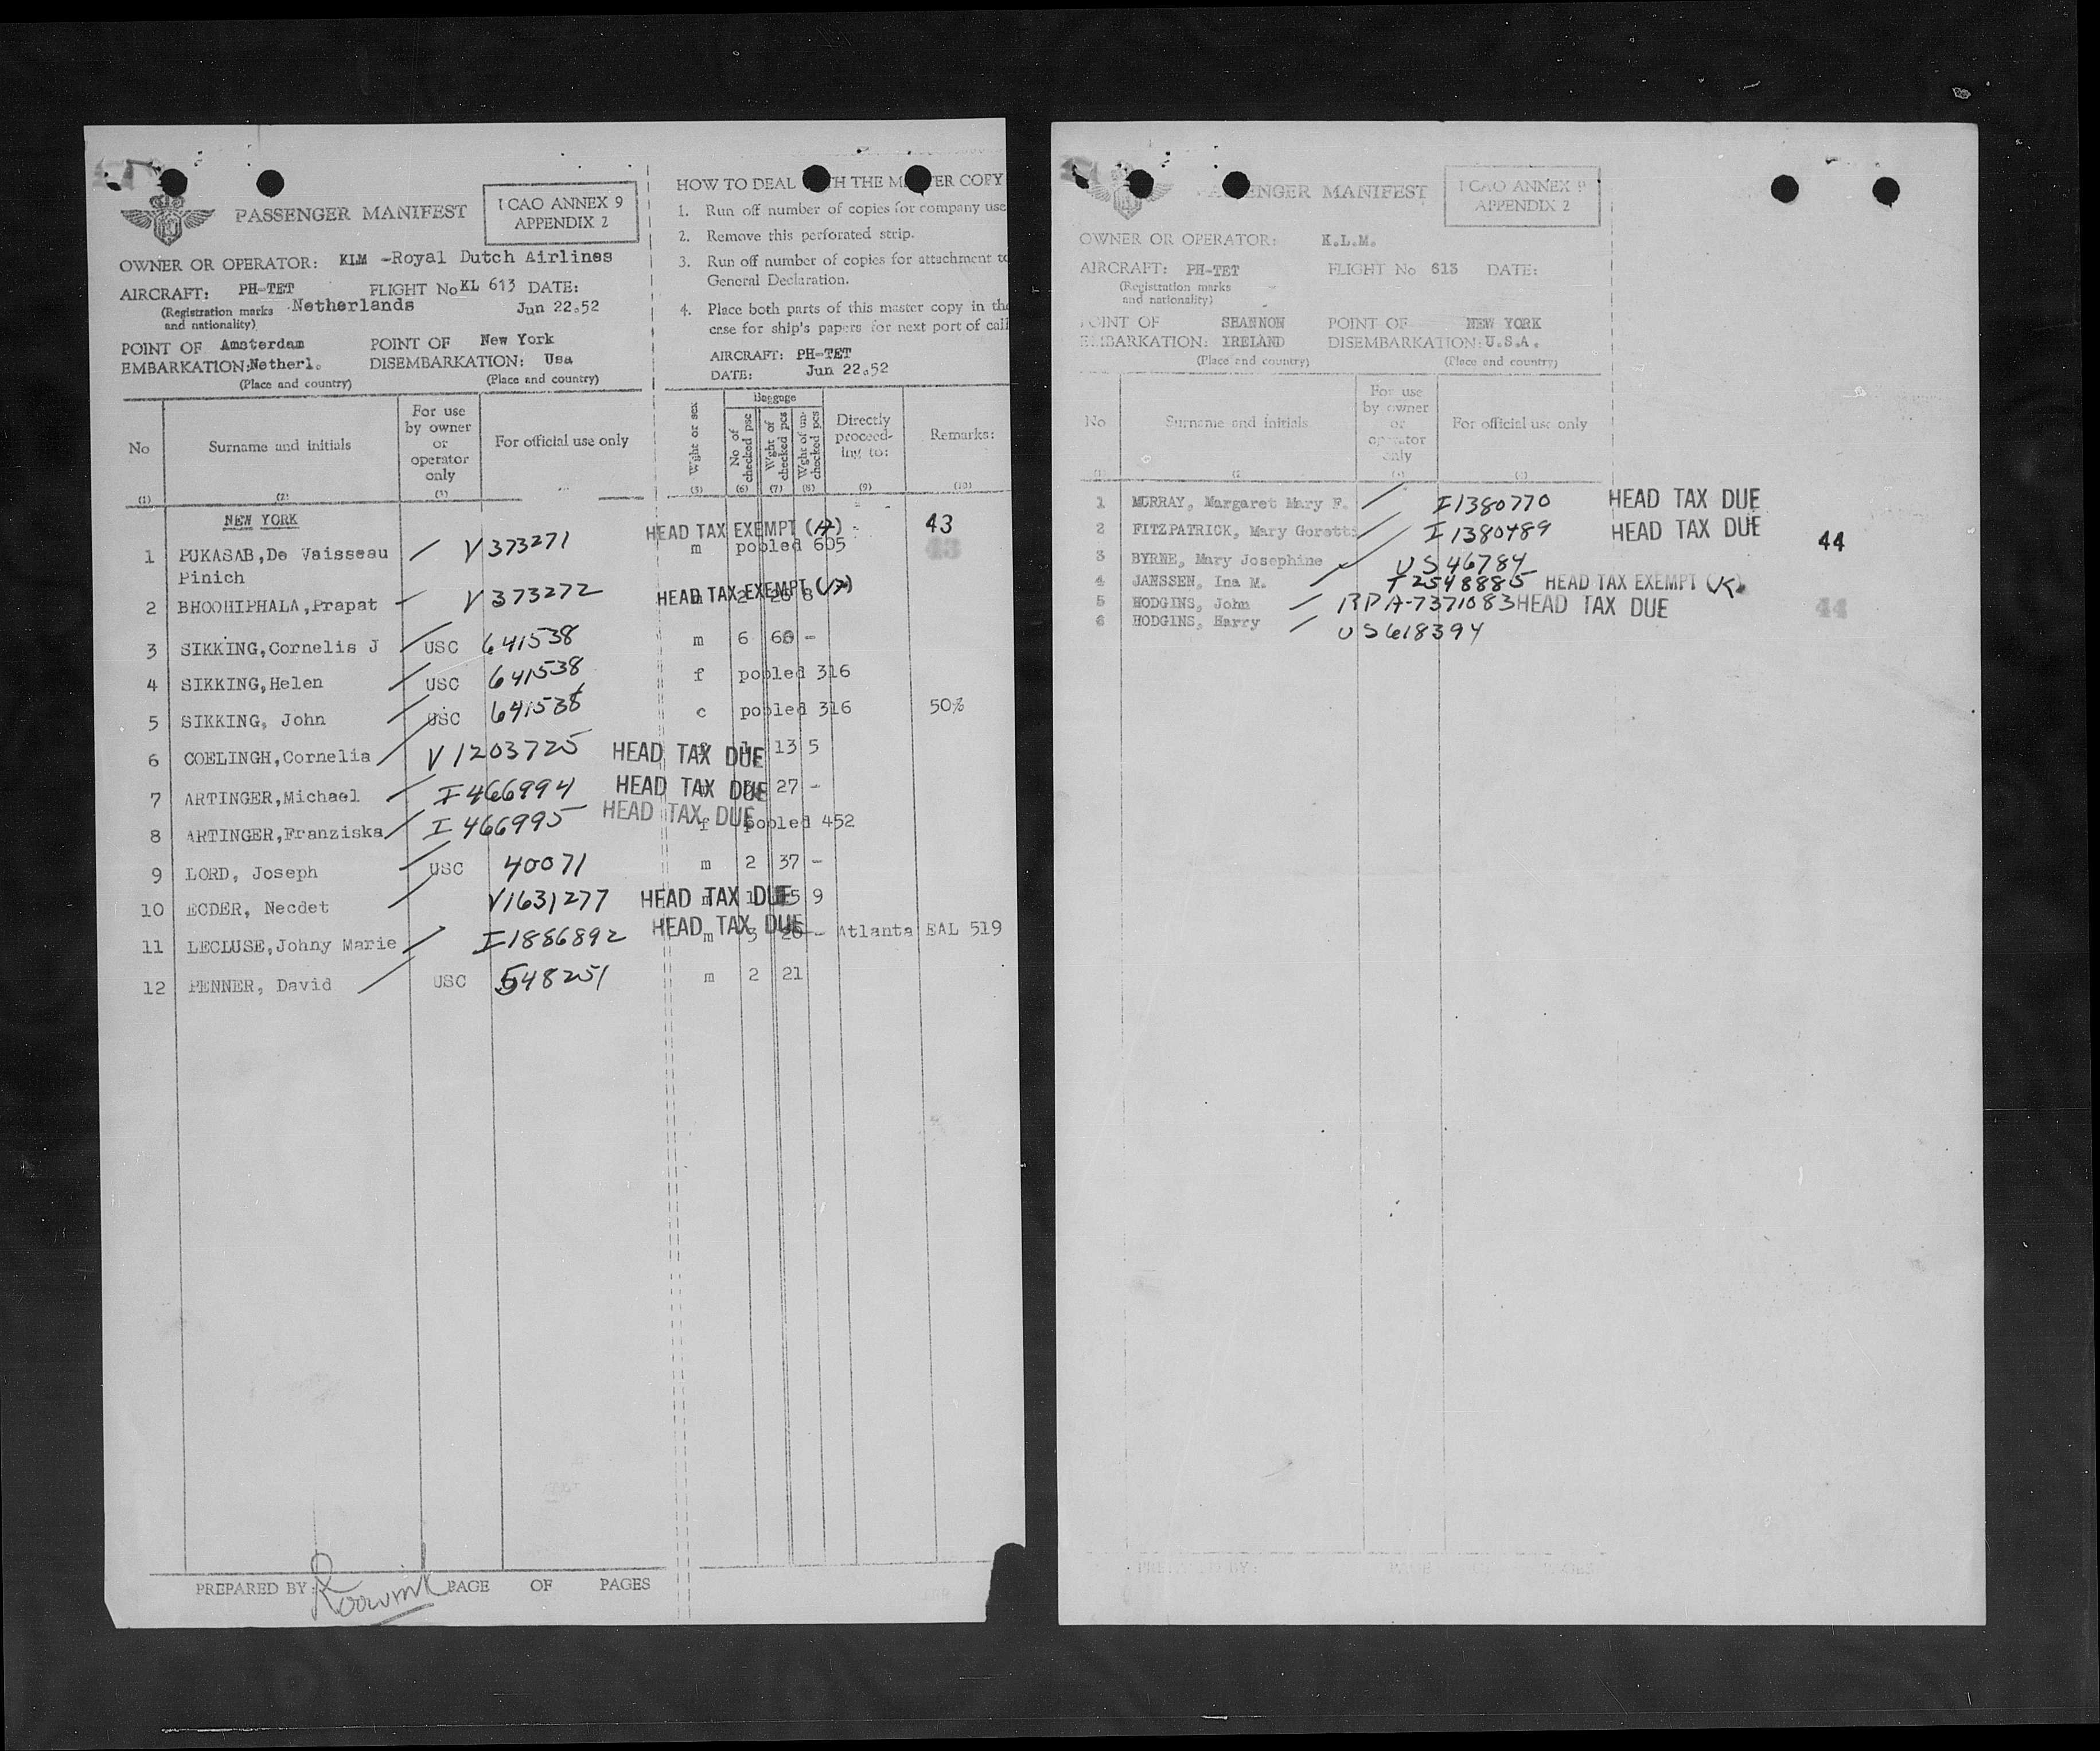 PASSENGER MANIFEST
ICAO ANNEX 9
APPENDIX 2
OWNER OR OPERATOR: KLM -Royal Dutch Airlines
AIRCRAFT: PH-TET FLIGHT No KL 613 DATE:
(Registration marks Netherlands Jun 22.52
and nationality)
POINT OF Amsterdam POINT OF New York
EMBARKATION: Netherl. DISEMBARKATION: Usa
(Place and country) (Place and country)
HOW TO DEAL WITH THE MASTER COPY
1. Run off number of copies for company use
2. Remove this perforated strip.
3. Run off number of copies for attachment to
General Declaration.
4. Place both parts of this master copy in the
case for ship's papers for next port of call
AIRCRAFT: PH-TET
DATE: Jun 22.52
No Surname and initials For use by owner or operator only For official use only Wght or sex Baggage No of checked psc Wght of checked pcs Wght of un-checked pcs Directly proceed-ing to: Remarks:
(1) (2) (3) (5) (6) (7) (8) (9) (10)
NEW YORK
HEAD TAX EXEMPT (17) 43
1 PUKASAB,De Vaisseau V 373271 m pooled 605 43
Pinich
2 BHOOHIPHALA,Prapat V 373272 HEAD TAX EXEMPT (17) 2 8
3 SIKKING,Cornelis J USC 641538 m 6 60 -
4 SIKKING,Helen USC 641538 f pooled 316
5 SIKKING, John USC 641538 c pooled 316 50%
6 COELINGH,Cornelia V 1203725 HEAD TAX DUE 13 5
7 ARTINGER,Michael I 466994 HEAD TAX DUE 27 -
8 ARTINGER,Franziska I 466995 HEAD TAX DUE f pooled 452
9 LORD, Joseph USC 40071 m 2 37 -
10 ECDER, Necdet V1631277 HEAD TAX DUE m 1 9
11 LECLUSE,Johny Marie I1886892 HEAD TAX DUE m 3 - Atlanta EAL 519
12 PENNER, David USC 548251 m 2 21
PREPARED BY: PAGE OF PAGES
PASSENGER MANIFEST
ICAO ANNEX 9
APPENDIX 2
OWNER OR OPERATOR: K.L.M.
AIRCRAFT: PH-TET FLIGHT No 613 DATE:
(Registration marks
and nationality)
POINT OF SHANNON POINT OF NEW YORK
EMBARKATION: IRELAND DISEMBARKATION: U.S.A.
(Place and country) (Place and country)
No Surname and initials For use by owner or operator only For official use only
1 MURRAY, Margaret Mary F. I1380770 HEAD TAX DUE
2 FITZPATRICK, Mary Goretti I 1380489 HEAD TAX DUE
44
3 BYRNE, Mary Josephine US 46784
4 JANSSEN, Ina M. T2548885 HEAD TAX EXEMPT (K)
5 HODGINS, John RP A-7371083 HEAD TAX DUE 44
6 HODGINS, Harry US618394
PREPARED BY: PAGE PAGES